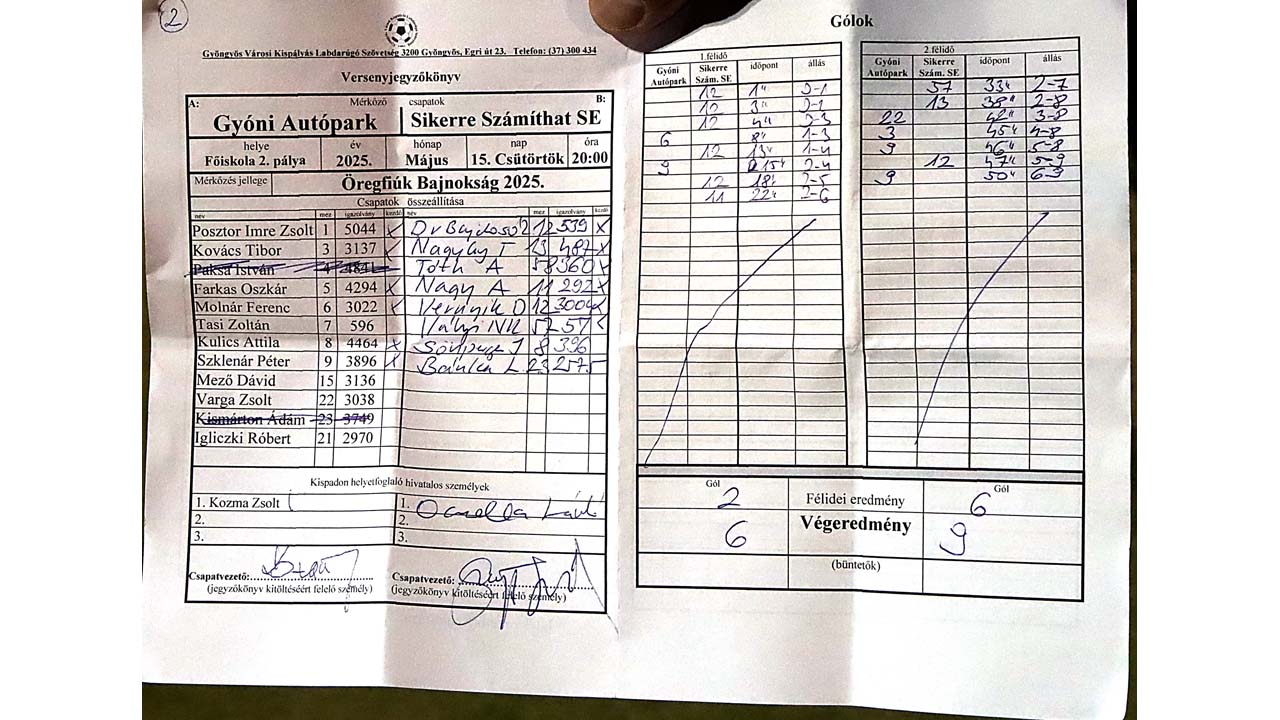 2
Gyöngyös Városi Kispályás Labdarúgó Szövetség 3200 Gyöngyös, Egri út 23. Telefon: (37) 300 434
Versenyjegyzőkönyv
A: Mérkőző csapatok B:
Gyóni Autópark Sikerre Számíthat SE
helye év hónap nap óra
Főiskola 2. pálya 2025. Május 15. Csütörtök 20:00
Mérkőzés jellege Öregfiúk Bajnokság 2025.
Csapatok összeállítása
név mez igazolvány kezdő név mez igazolvány kezdő
Posztor Imre Zsolt 1 5044 x 12 539 x
Kovács Tibor 3 3137 x 13 487 x
Paksa István 4
Tóth A 58 360 x
Farkas Oszkár 5 4294 x Nagy A 11 292 x
Molnár Ferenc 6 3022 x 12 3004 x
Tasi Zoltán 7 596 57 57 x
Kulics Attila 8 4464 x 8 396
Szklenár Péter 9 3896 x 23 2575
Mező Dávid 15 3136
Varga Zsolt 22 3038
Kismárton Ádám 23 3749
Igliczki Róbert 21 2970
Kispadon helyetfoglaló hivatalos személyek
1. Kozma Zsolt 1.
2. 2.
3. 3.
Csapatvezető: Csapatvezető:
(jegyzőkönyv kitöltéséért felelő személy) (jegyzőkönyv kitöltéséért felelő személy)
Gólok
1.félidő
Gyóni Autópark Sikerre Szám. SE időpont állás
12 1" 0-1
12 3" 0-2
12 4" 0-3
6 8" 1-3
12 13" 1-4
9 15" 2-4
12 18" 2-5
11 22" 2-6
2.félidő
Gyóni Autópark Sikerre Szám. SE időpont állás
57 33" 2-7
13 38" 2-8
22 42" 3-8
3 45" 4-8
9 46" 5-8
12 47" 5-9
9 50" 6-9
Gól Gól
2 Félidei eredmény 6
6 Végeredmény 9
(büntetők)